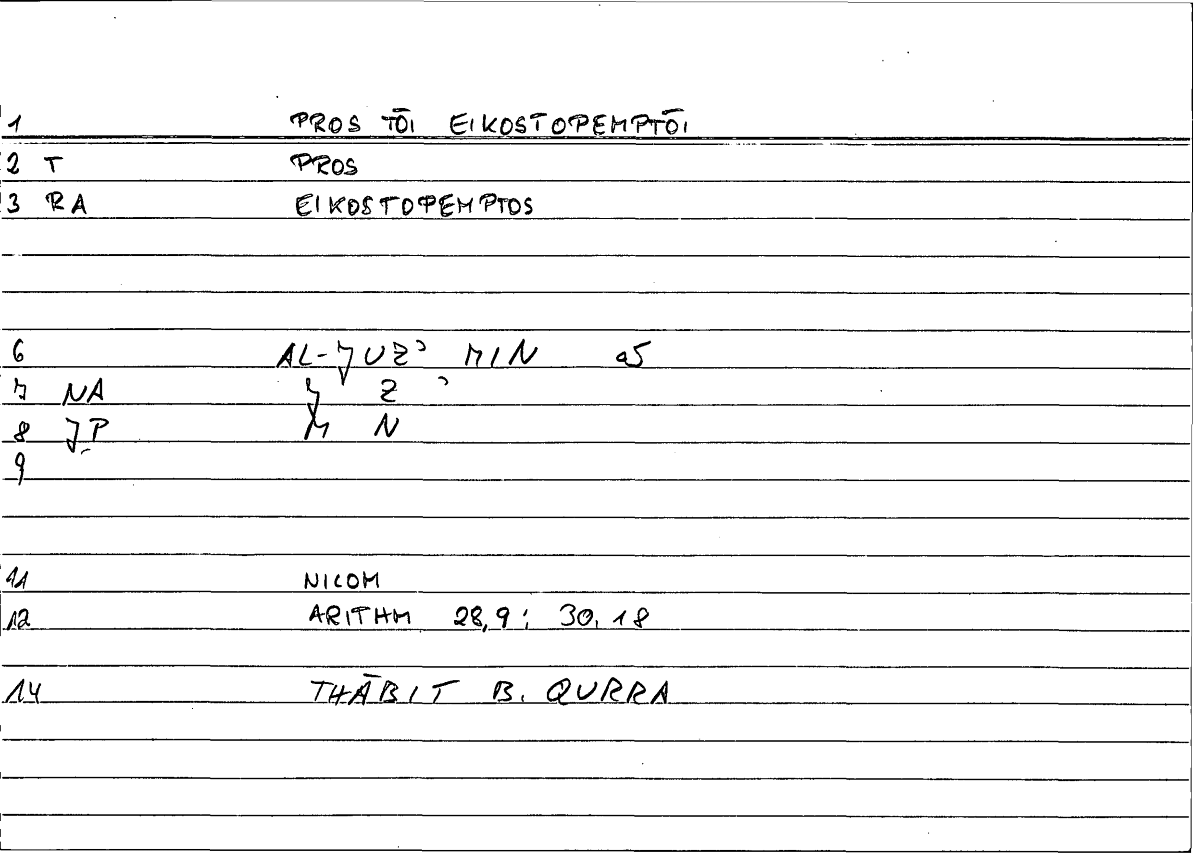 1 PROS TŌI EIKOSTOPEMPTŌI
2 T PROS
3 RA EIKOSTOPEMPTOS
6 AL-JUZʾ MIN 25
7 NA J Z ʾ
8 JP M N
9
11 NICOM
12 ARITHM 28,9; 30,18
14 THĀBIT B. QURRA